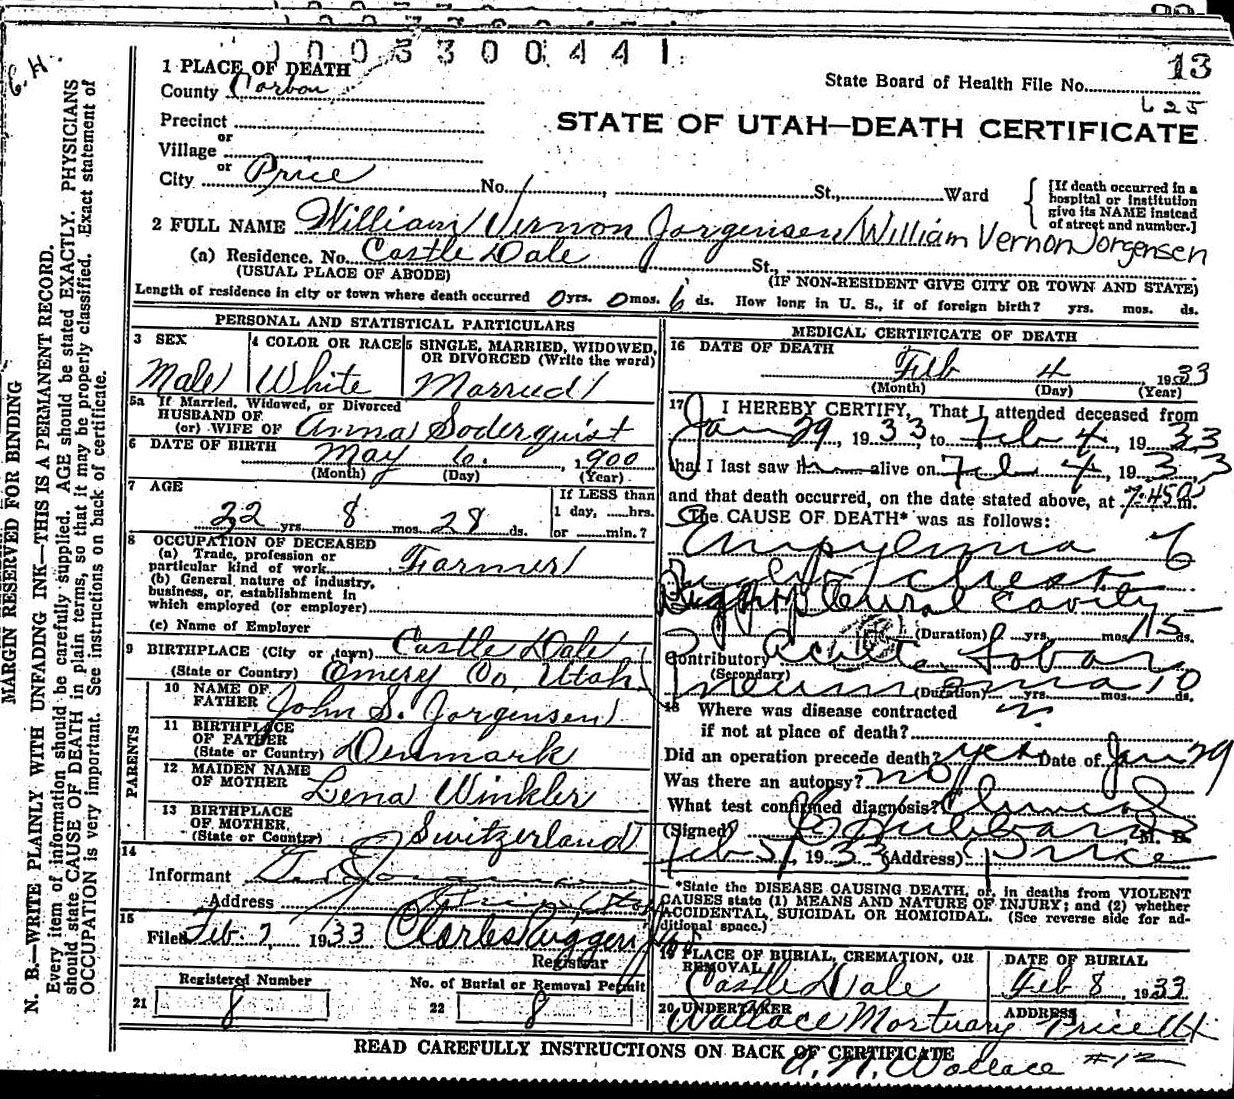 1003300441
13
1 PLACE OF DEATH
State Board of Health File No.
County Carbon
625
Precinct
STATE OF UTAH—DEATH CERTIFICATE
or
Village
or
City Price No. , St., Ward
[If death occurred in a hospital or institution give its NAME instead of street and number.]
2 FULL NAME William Vernon Jorgensen William Vernon Jorgensen
(a) Residence. No. Castle Dale St.,
(USUAL PLACE OF ABODE) (IF NON-RESIDENT GIVE CITY OR TOWN AND STATE)
Length of residence in city or town where death occurred 0 yrs. 0 mos. 6 ds. How long in U. S., if of foreign birth? yrs. mos. ds.
PERSONAL AND STATISTICAL PARTICULARS
3 SEX
Male
4 COLOR OR RACE
White
5 SINGLE, MARRIED, WIDOWED, OR DIVORCED (Write the word)
Married
5a If Married, Widowed, or Divorced
HUSBAND OF
(or) WIFE OF Anna Soderquist
6 DATE OF BIRTH May 6, 1900
(Month) (Day) (Year)
7 AGE
32 yrs. 8 mos. 28 ds.
If LESS than
1 day, hrs.
or min.?
8 OCCUPATION OF DECEASED
(a) Trade, profession or
particular kind of work Farmer
(b) General nature of industry,
business, or establishment in
which employed (or employer)
(c) Name of Employer
9 BIRTHPLACE (City or town) Castle Dale
(State or Country) Emery Co, Utah
PARENTS
10 NAME OF
FATHER John S. Jorgensen
11 BIRTHPLACE
OF FATHER
(State or Country) Denmark
12 MAIDEN NAME
OF MOTHER Lena Winkler
13 BIRTHPLACE
OF MOTHER
(State or Country) Switzerland
14
Informant
Address Price Utah
15
Filed Feb. 7, 1933 Charles Ruggeri
Registrar
Registered Number
21 8
No. of Burial or Removal Permit
22 8
MEDICAL CERTIFICATE OF DEATH
16 DATE OF DEATH
Feb 4 1933
(Month) (Day) (Year)
17 I HEREBY CERTIFY, That I attended deceased from
Jan 29, 1933 to Feb 4, 1933
that I last saw him alive on Feb 4, 1933,
and that death occurred, on the date stated above, at 7:45 m.
The CAUSE OF DEATH* was as follows:
Empyemia
Right chest
Pleural Cavity
(Duration) yrs. mos. 15 ds.
Contributory Acute Lobar
(Secondary)
Pneumonia (Duration) yrs. mos. 10 ds.
18 Where was disease contracted
if not at place of death?
Did an operation precede death? yes Date of Jan 29
Was there an autopsy? no
What test confirmed diagnosis? Clinical
(Signed) Hubbard M. D.
Feb 5, 1933 (Address) Price
*State the DISEASE CAUSING DEATH, or, in deaths from VIOLENT
CAUSES state (1) MEANS AND NATURE OF INJURY; and (2) whether
ACCIDENTAL, SUICIDAL OR HOMICIDAL. (See reverse side for ad-
ditional space.)
19 PLACE OF BURIAL, CREMATION, OR
REMOVAL
Castle Dale
DATE OF BURIAL
Feb 8, 1933
20 UNDERTAKER
Wallace Mortuary
ADDRESS
Price Ut
READ CAREFULLY INSTRUCTIONS ON BACK OF CERTIFICATE
Wallace #12
MARGIN RESERVED FOR BINDING
N. B.—WRITE PLAINLY WITH UNFADING INK—THIS IS A PERMANENT RECORD.
Every item of information should be carefully supplied. AGE should be stated EXACTLY. PHYSICIANS
should state CAUSE OF DEATH in plain terms, so that it may be properly classified. Exact statement of
OCCUPATION is very important. See instructions on back of certificate.